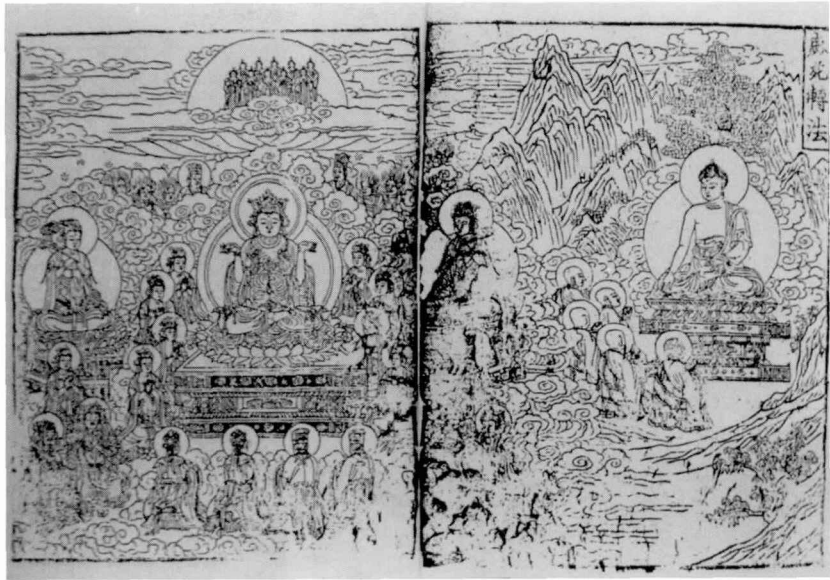 鹿苑轉法